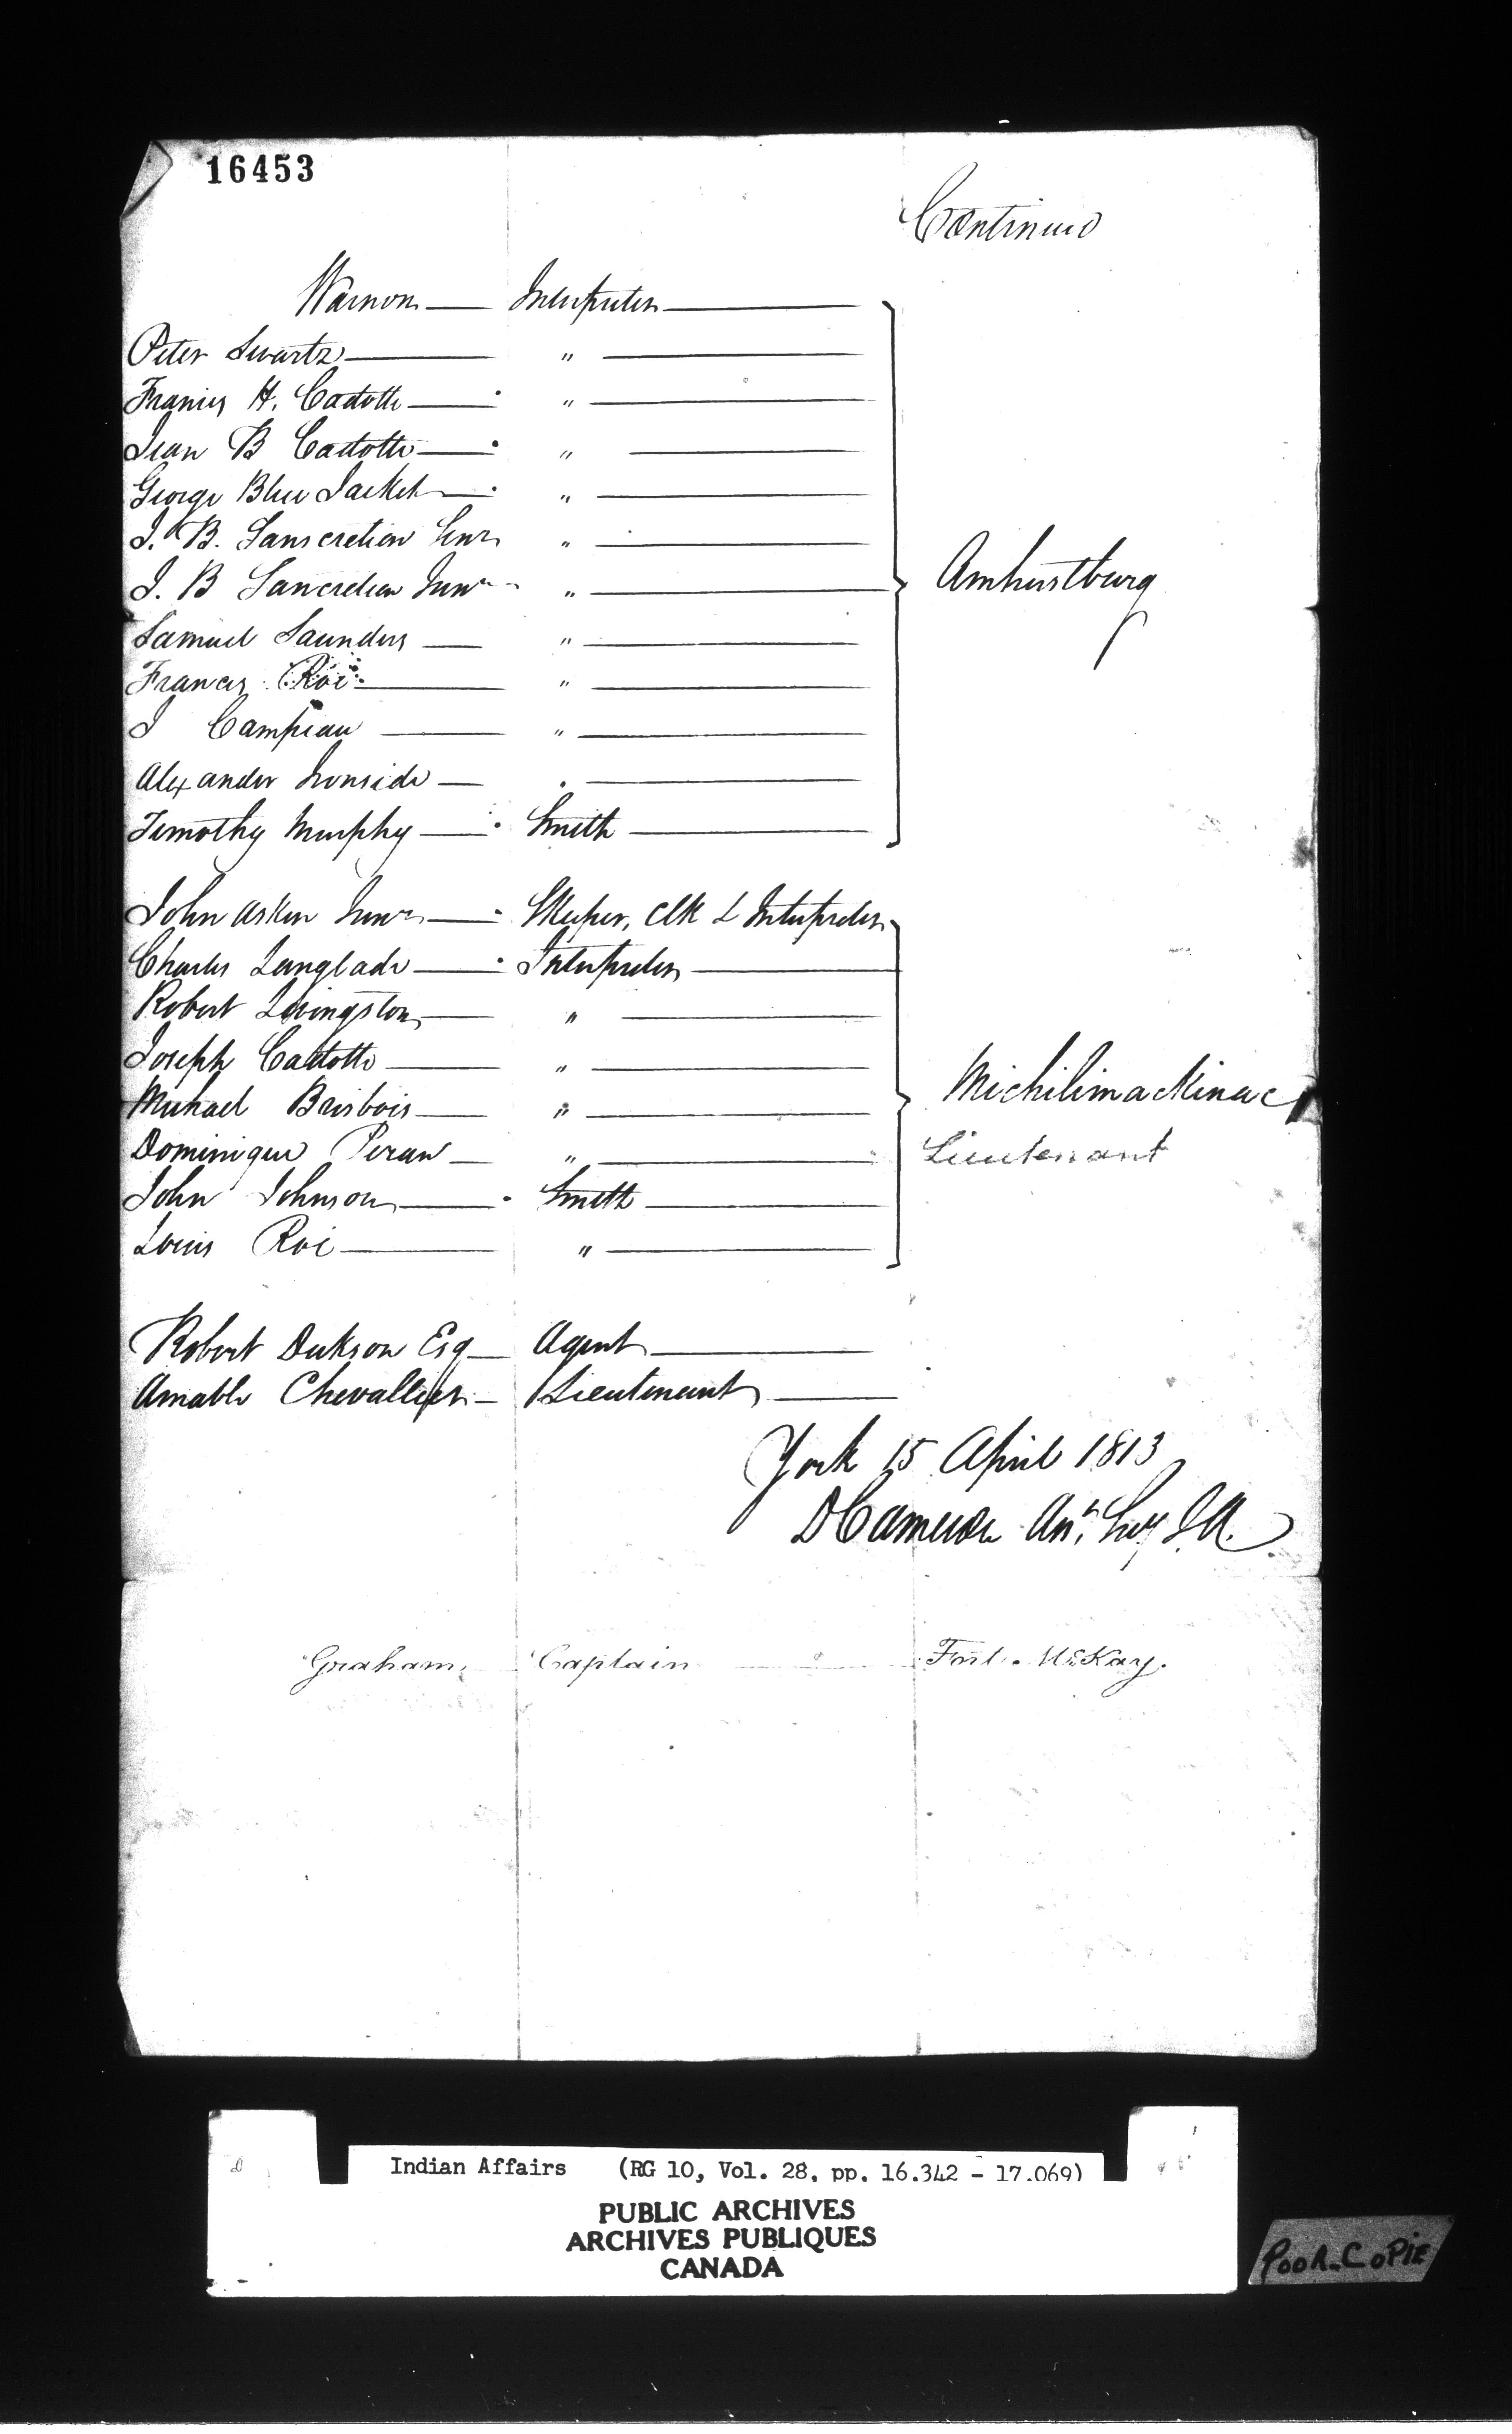 16453
Continued
Warnon — Interpreter —
Peter Swartz — " —
Francis H. Cadotte — " —
Jean B Cadotte — " —
George Blue Jacket — " —
J. B. Sanscretion Senr " —
J. B Sancretion Junr - " —
Samuel Saunders — " —
Francis Roi — " —
J Campeau — " —
Alexander Ironside — " —
Timothy Murphy — Smith —
Amherstburg
John Askin Junr — SKeeper, Clk & Interpreter
Charles Langlade — Interpreter —
Robert Livingston — " —
Joseph Cadotte — " —
Michael Brisbois — " —
Dominique Perau — " —
John Johnson — Smith —
Louis Roi — " —
Michilimackinac
Lieutenant
Robert Dickson Esq — Agent —
Amable Chevallier — Lieutenant —
York 15 April 1813
D Cameron Asst. Secy I.A.
Graham, Captain Fort McKay.
Indian Affairs (RG 10, Vol. 28, pp. 16.342 - 17.069)
PUBLIC ARCHIVES
ARCHIVES PUBLIQUES
CANADA
POOR-COPIE